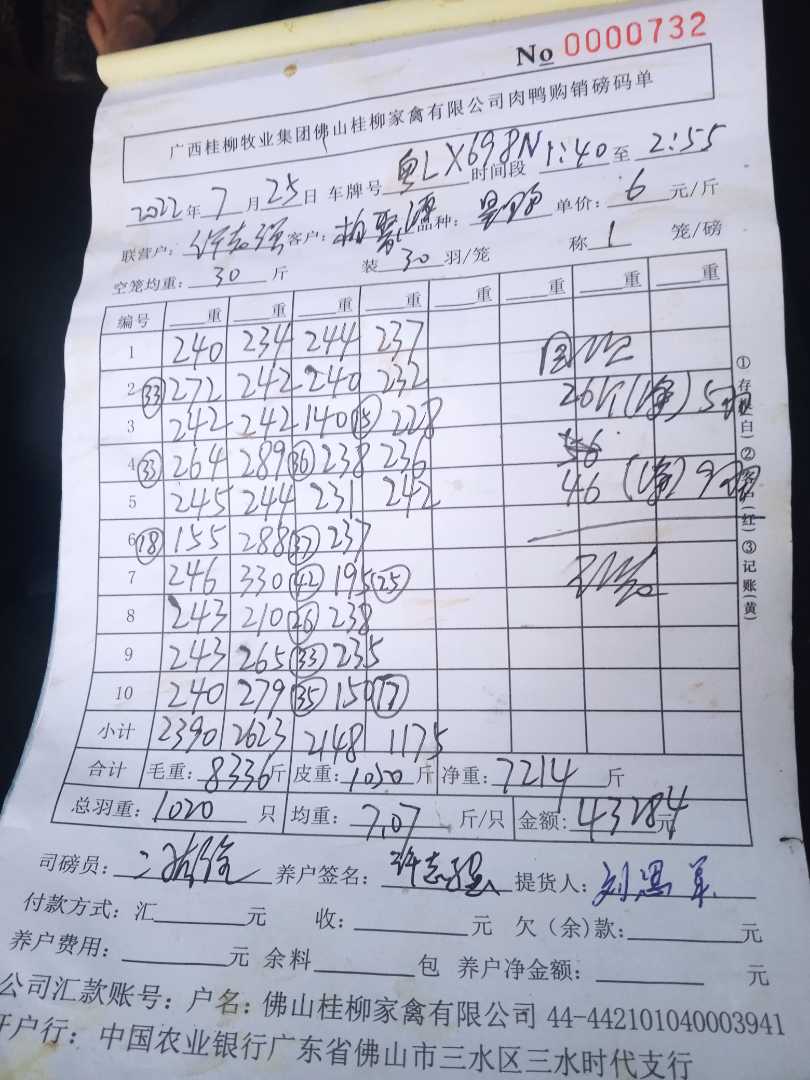 No 0000732
广西桂柳牧业集团佛山桂柳家禽有限公司肉鸭购销磅码单
2022年7月25日 车牌号 粤LX698N 时间段 1:40至 2:55
联营户: 许志强 客户: 品种: 单价: 6 元/斤
空笼均重: 30 斤 装 30 羽/笼 称 1 笼/磅
编号 重 重 重 重 重 重 重 重
1 240 234 244 237
2 (33) 272 242 240 232 26 5
3 242 242 140 (15) 228
4 (33) 264 289 (36) 238 236 46 9
5 245 244 231 242
6 (18) 155 288 (37) 237
7 246 330 (42) 195 (25)
8 243 210 (26) 238
9 243 265 (33) 235
10 240 279 (35) 150 (17)
小计 2390 2623 2148 1175
合计 毛重: 8336斤 皮重: 1050 斤 净重: 7214 斤
总羽重: 1020 只 均重: 7.07 斤/只 金额: 43284元
司磅员: 养户签名: 许志强 提货人: 刘
付款方式: 汇 元 收: 元 欠(余)款: 元
养户费用: 元 余料 包 养户净金额: 元
公司汇款账号: 户名: 佛山桂柳家禽有限公司 44-442101040003941
开户行: 中国农业银行广东省佛山市三水区三水时代支行
①存根(白)②客户(红)③记账(黄)